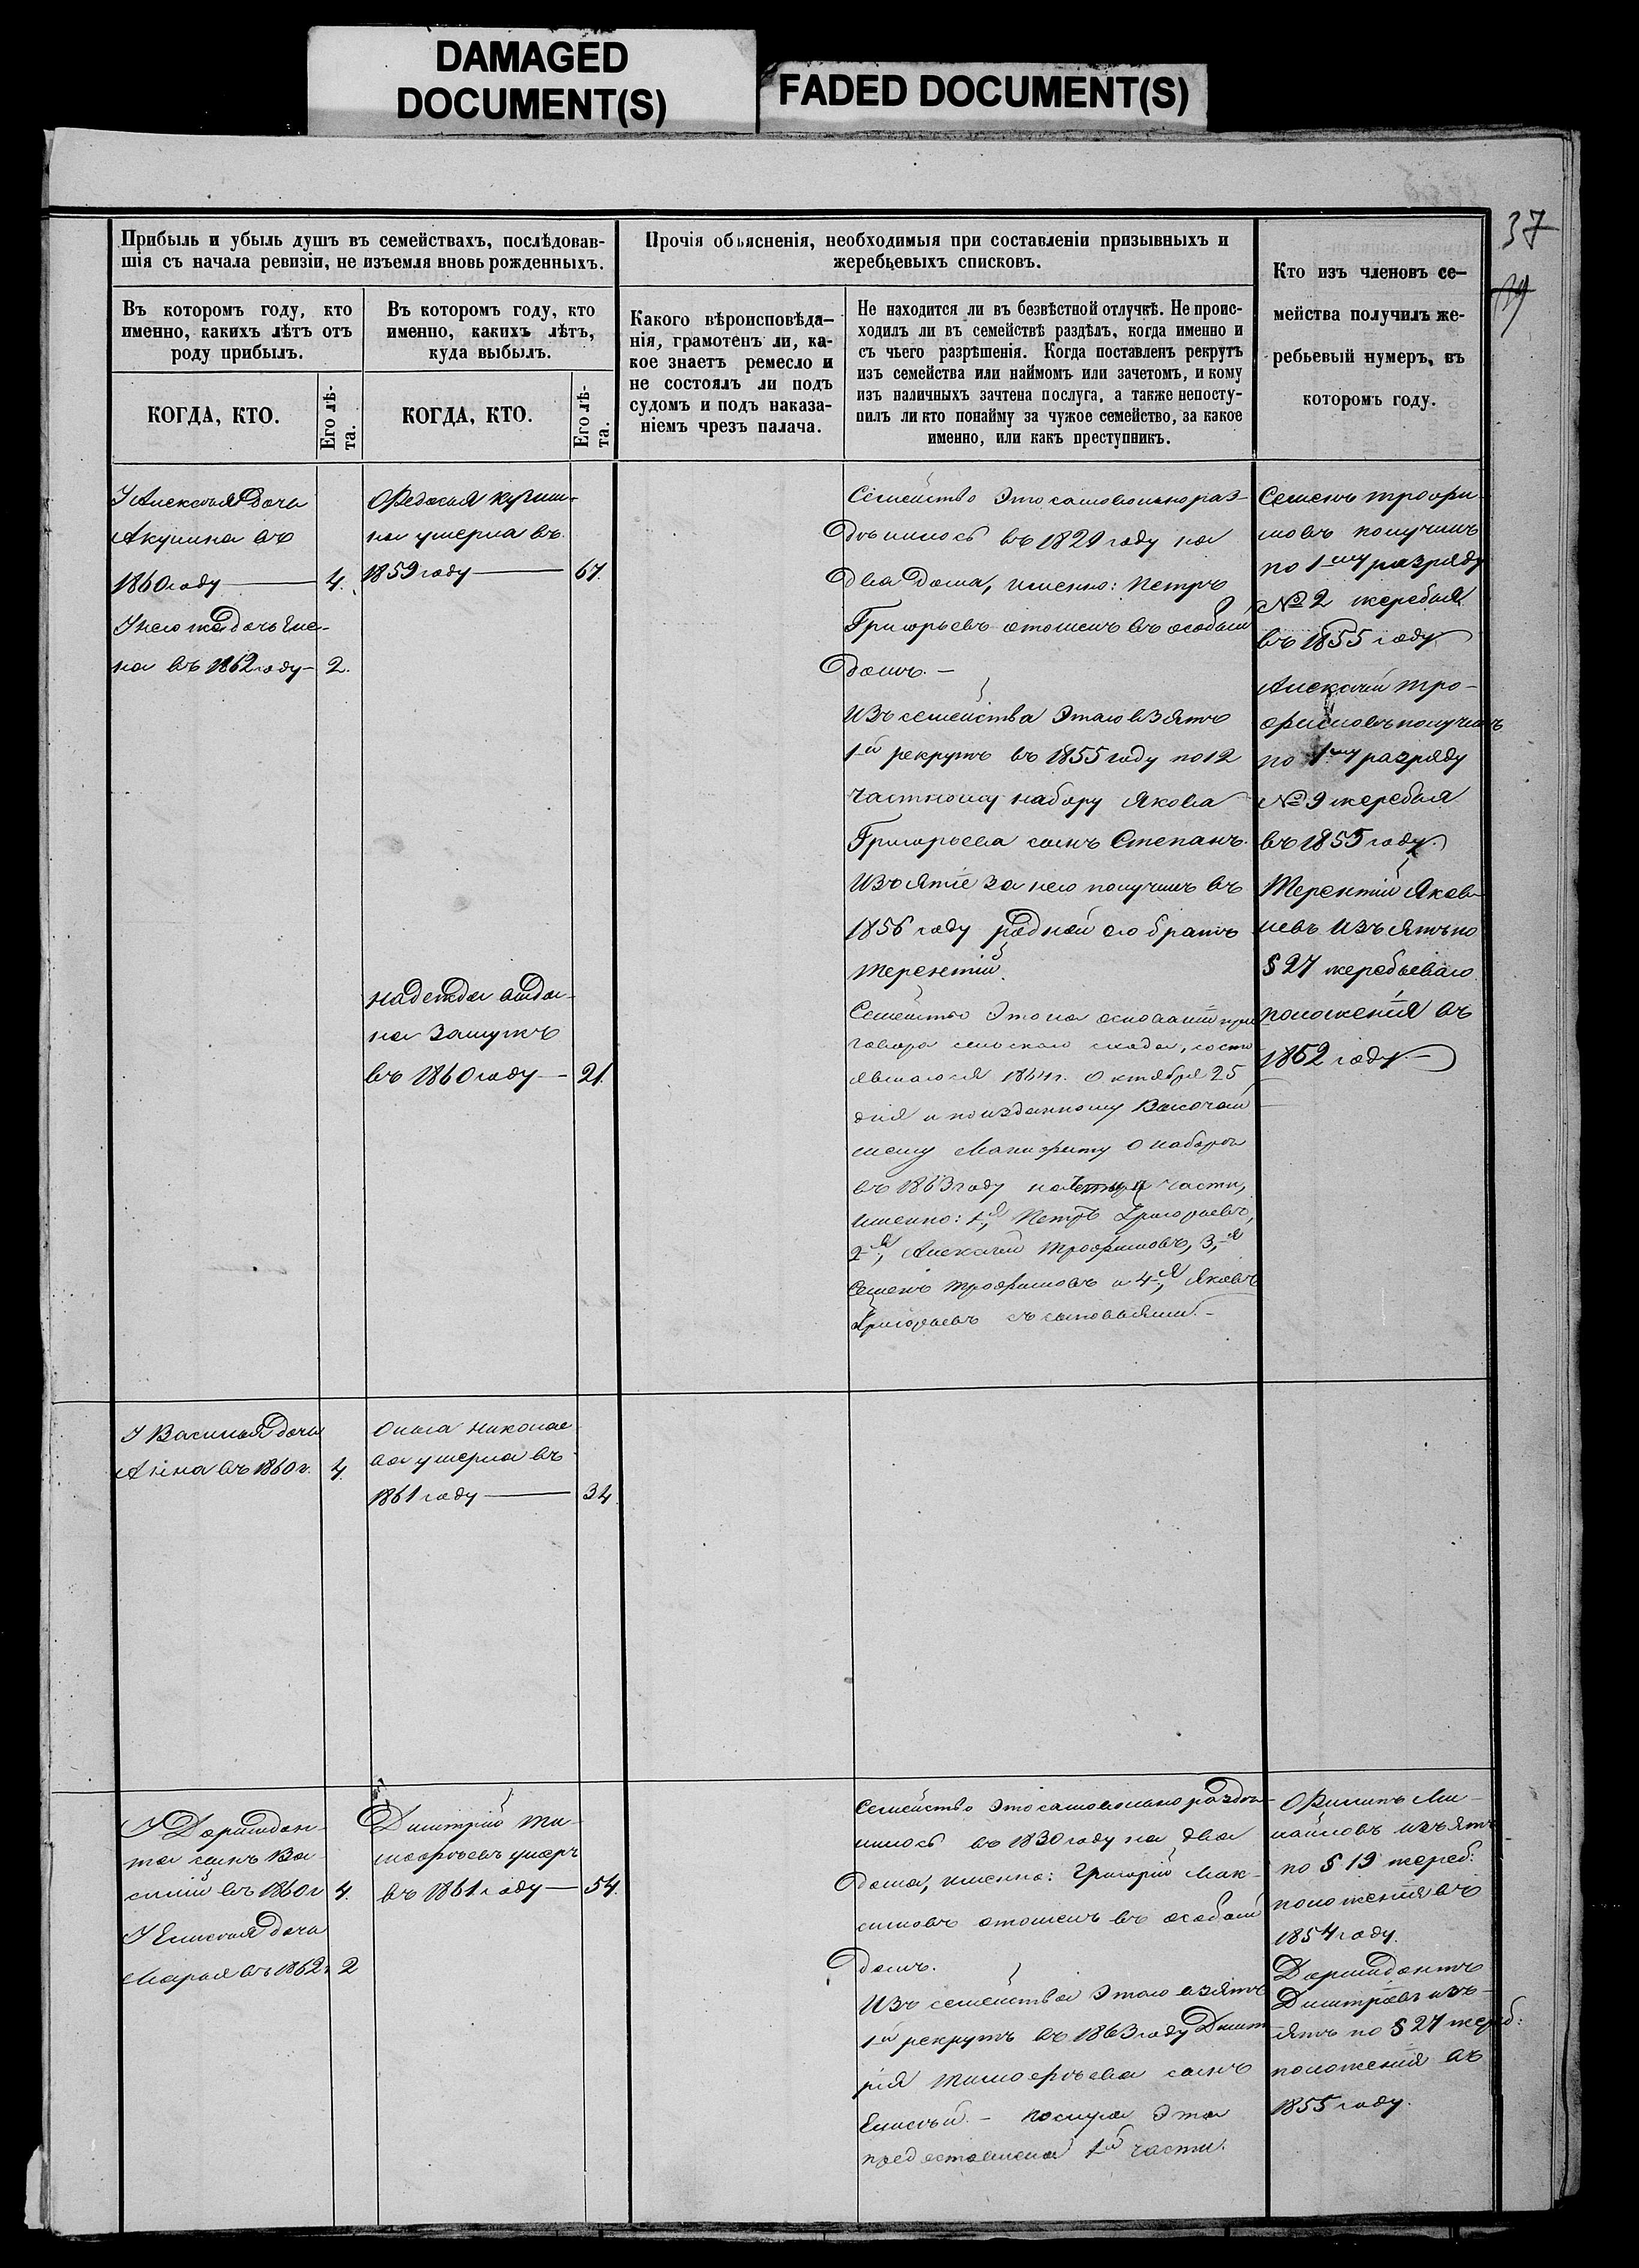 DAMAGED
DOCUMENT(S)
FADED DOCUMENT(S)
37
19
Прибыль и убыль душъ въ семействахъ, послѣдовав-
шія съ начала ревизіи, не изъемля вновь рожденныхъ.
Въ которомъ году, кто
именно, какихъ лѣтъ отъ
роду прибылъ.
Въ которомъ году, кто
именно, какихъ лѣтъ,
куда выбылъ.
КОГДА, КТО.
Его лѣ-
та.
КОГДА, КТО.
Его лѣ-
та.
Прочія объясненія, необходимыя при составленіи призывныхъ и
жеребьевыхъ списковъ.
Какого вѣроисповѣда-
нія, грамотенъ ли, ка-
кое знаетъ ремесло и
не состоялъ ли подъ
судомъ и подъ наказа-
ніемъ чрезъ палача.
Не находится ли въ безвѣстной отлучкѣ. Не проис-
ходилъ ли въ семействѣ раздѣлъ, когда именно и
съ чьего разрѣшенія. Когда поставленъ рекрутъ
изъ семейства или наймомъ или зачетомъ, и кому
изъ наличныхъ зачтена послуга, а также непосту-
пилъ ли кто понайму за чужое семейство, за какое
именно, или какъ преступникъ.
Кто изъ членовъ се-
мейства получилъ же-
ребьевый нумеръ, въ
которомъ году.
У Алексѣя дочь
Акулина въ
1860 году — 4.
У него же дочь Еле-
на въ 1862 году — 2.
Федосья
на умерла въ
1859 году — 67.
Надежда выда-
на замужъ
въ 1860 году — 21.
Семейство это самовольно раз-
дѣлилось въ 1829 году на
два дома, именно: Петръ
Григорьевъ отошелъ въ особый
домъ. —
Изъ семейства этаго взятъ
1й рекрутъ въ 1855 году по 12
частному набору Якова
Григорьева сынъ Степанъ.
Изъятіе за него получилъ въ
1856 году родной его братъ
Терентій.
Семейство это на основаніи при
говора сельскаго схода, состо
явшагося 1864 г. Октября 25
дня и по изданному Высочай
шему Манифесту о наборѣ
въ 1863 году на четыре части,
именно: 1я, Петръ Григорьевъ,
2я, Алексѣй Трофимовъ, 3,я
Семенъ Трофимовъ и 4я, Яковъ
Григорьевъ съ сыновьями. —
Семенъ Трофи-
мовъ получилъ
по 1му разряду
№ 2 жеребья
въ 1855 году
Алексѣй Тро-
фимовъ получилъ
по 1му разряду
№ 9 жеребья
въ 1855 году.
Терентій Яков-
левъ изъятъ по
§ 27 жеребьеваго
положенія въ
1862 году. —
У Василья дочь
Анна въ 1860 г. 4
Ольга Николае
ва умерла въ
1861 году — 34.
У Доримдон-
та сынъ Ва-
силій въ 1860 г 4.
У Елисѣя дочь
Марья въ 1862 г 2
Дмитрій Ти-
мофѣевъ умеръ
въ 1861 году — 54.
Семейство это самовольно раздѣ-
лилось въ 1830 году на два
дома, именно: Григорій Мак-
симовъ отошелъ въ особый
домъ.
Изъ семейства этаго взятъ
1й рекрутъ въ 1863 году Дмит
рія Тимофѣева сынъ
Елисѣй. — Послуга эта
предоставлена 1й части.
Филипъ Ми-
хайловъ изъятъ
по § 19 жереб:
положенія въ
1854 году.
Доримдонтъ
Дмитріевъ изъ-
ятъ по § 27 жереб:
положенія въ
1855 году.